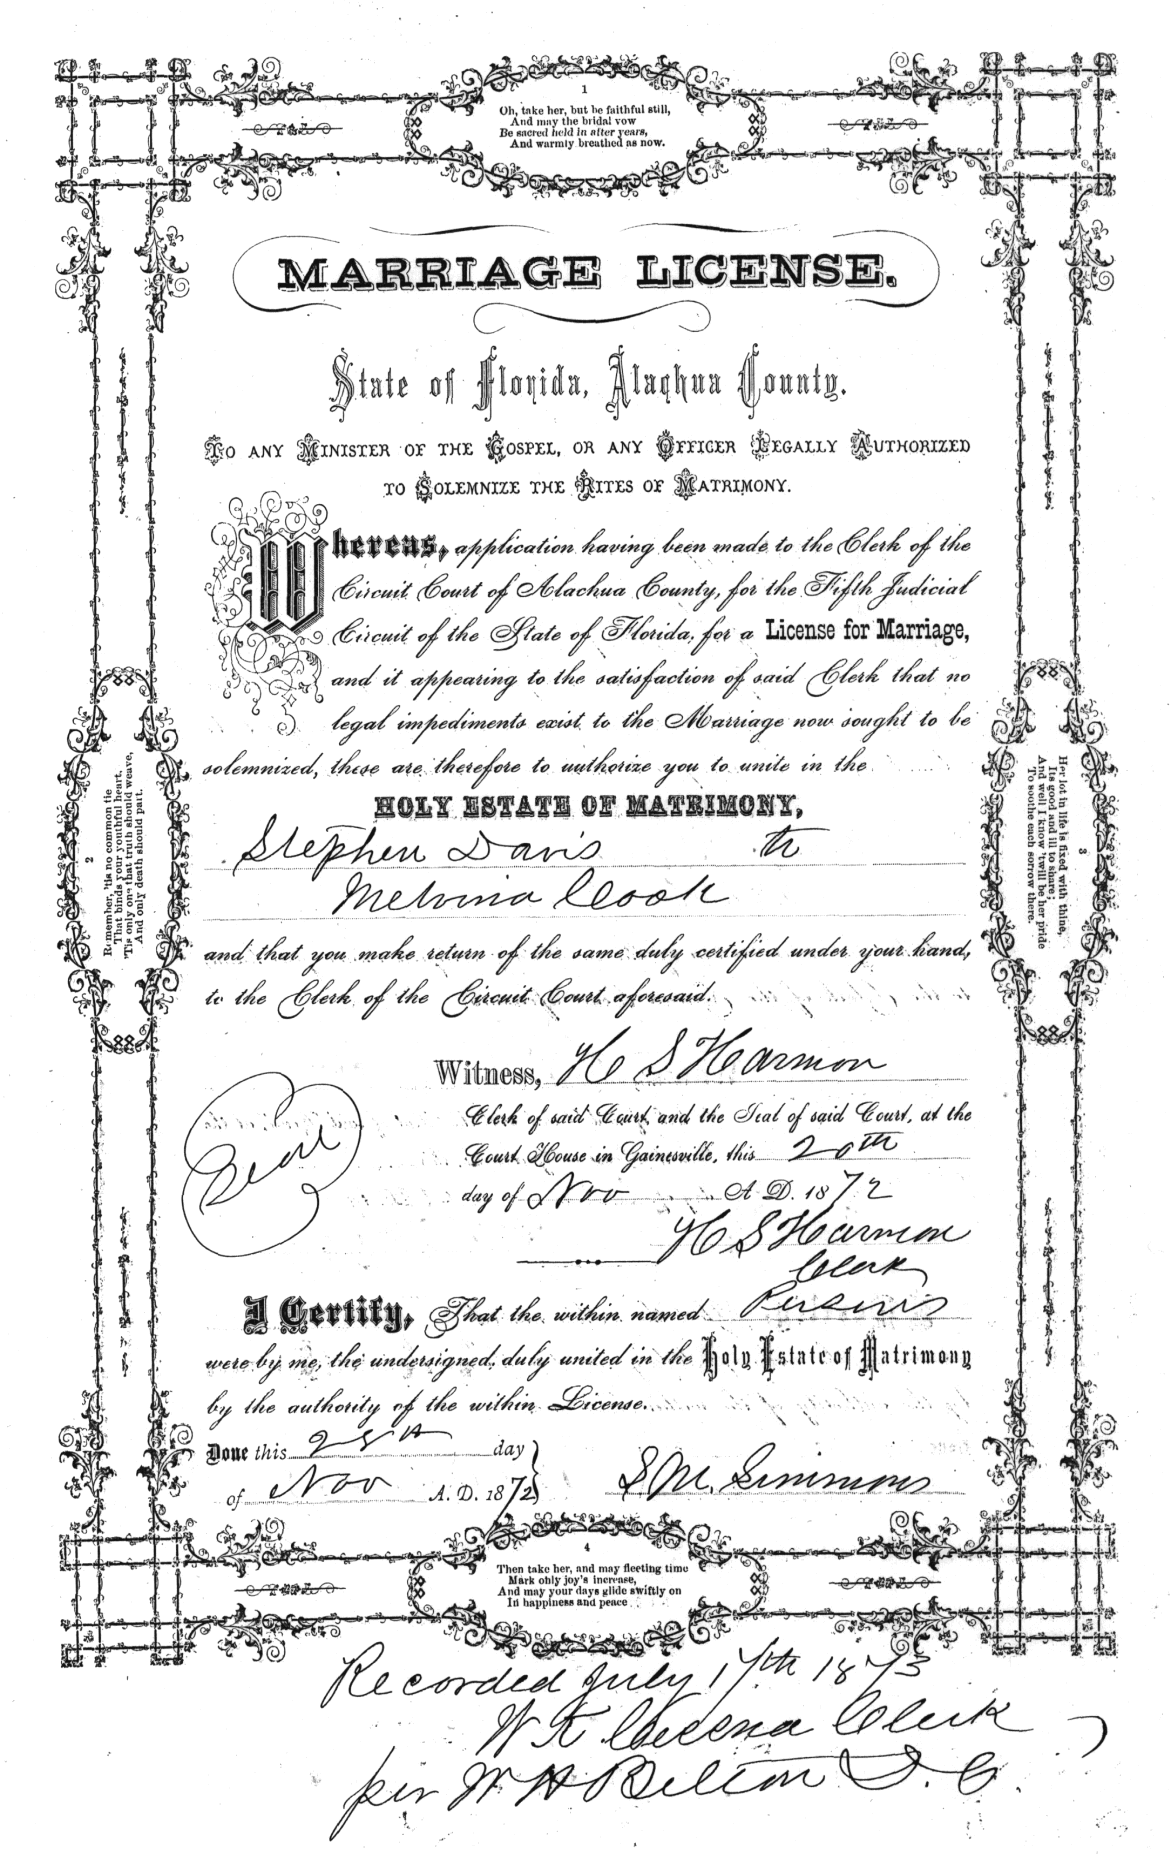 1
Oh, take her, but be faithful still,
And may the bridal vow
Be sacred held in after years,
And warmly breathed as now.
MARRIAGE LICENSE.
State of Florida, Alachua County.
TO ANY MINISTER OF THE GOSPEL, OR ANY OFFICER LEGALLY AUTHORIZED
TO SOLEMNIZE THE RITES OF MATRIMONY.
Whereas, application having been made to the Clerk of the
Circuit Court of Alachua County, for the Fifth Judicial
Circuit of the State of Florida, for a License for Marriage,
and it appearing to the satisfaction of said Clerk that no
legal impediments exist to the Marriage now sought to be
solemnized, these are therefore to authorize you to unite in the
HOLY ESTATE OF MATRIMONY,
Stephen Davis to
Melvina Cook
and that you make return of the same duly certified under your hand,
to the Clerk of the Circuit Court aforesaid.
Witness, H S Harmon
Clerk of said Court, and the Seal of said Court, at the
Court House in Gainesville, this 20th
day of Nov A. D. 1872
Seal
H S Harmon
Clerk
I Certify, That the within named Persons
were by me, the undersigned, duly united in the Holy Estate of Matrimony
by the authority of the within License.
Done this 28th day
of Nov A. D. 1872
S M. Simmons
2
Remember, 'tis no common tie
That binds your youthful heart,
'Tis only one that truth should weave,
And only death should part.
3
Her lot in life is fixed with thine,
Its good and ill to share;
And well I know 'twill be her pride
To soothe each sorrow there.
4
Then take her, and may fleeting time
Mark only joy's increase,
And may your days glide swiftly on
In happiness and peace.
Recorded July 17th 1873
W K Cessna Clerk
per W H Belton D. C.